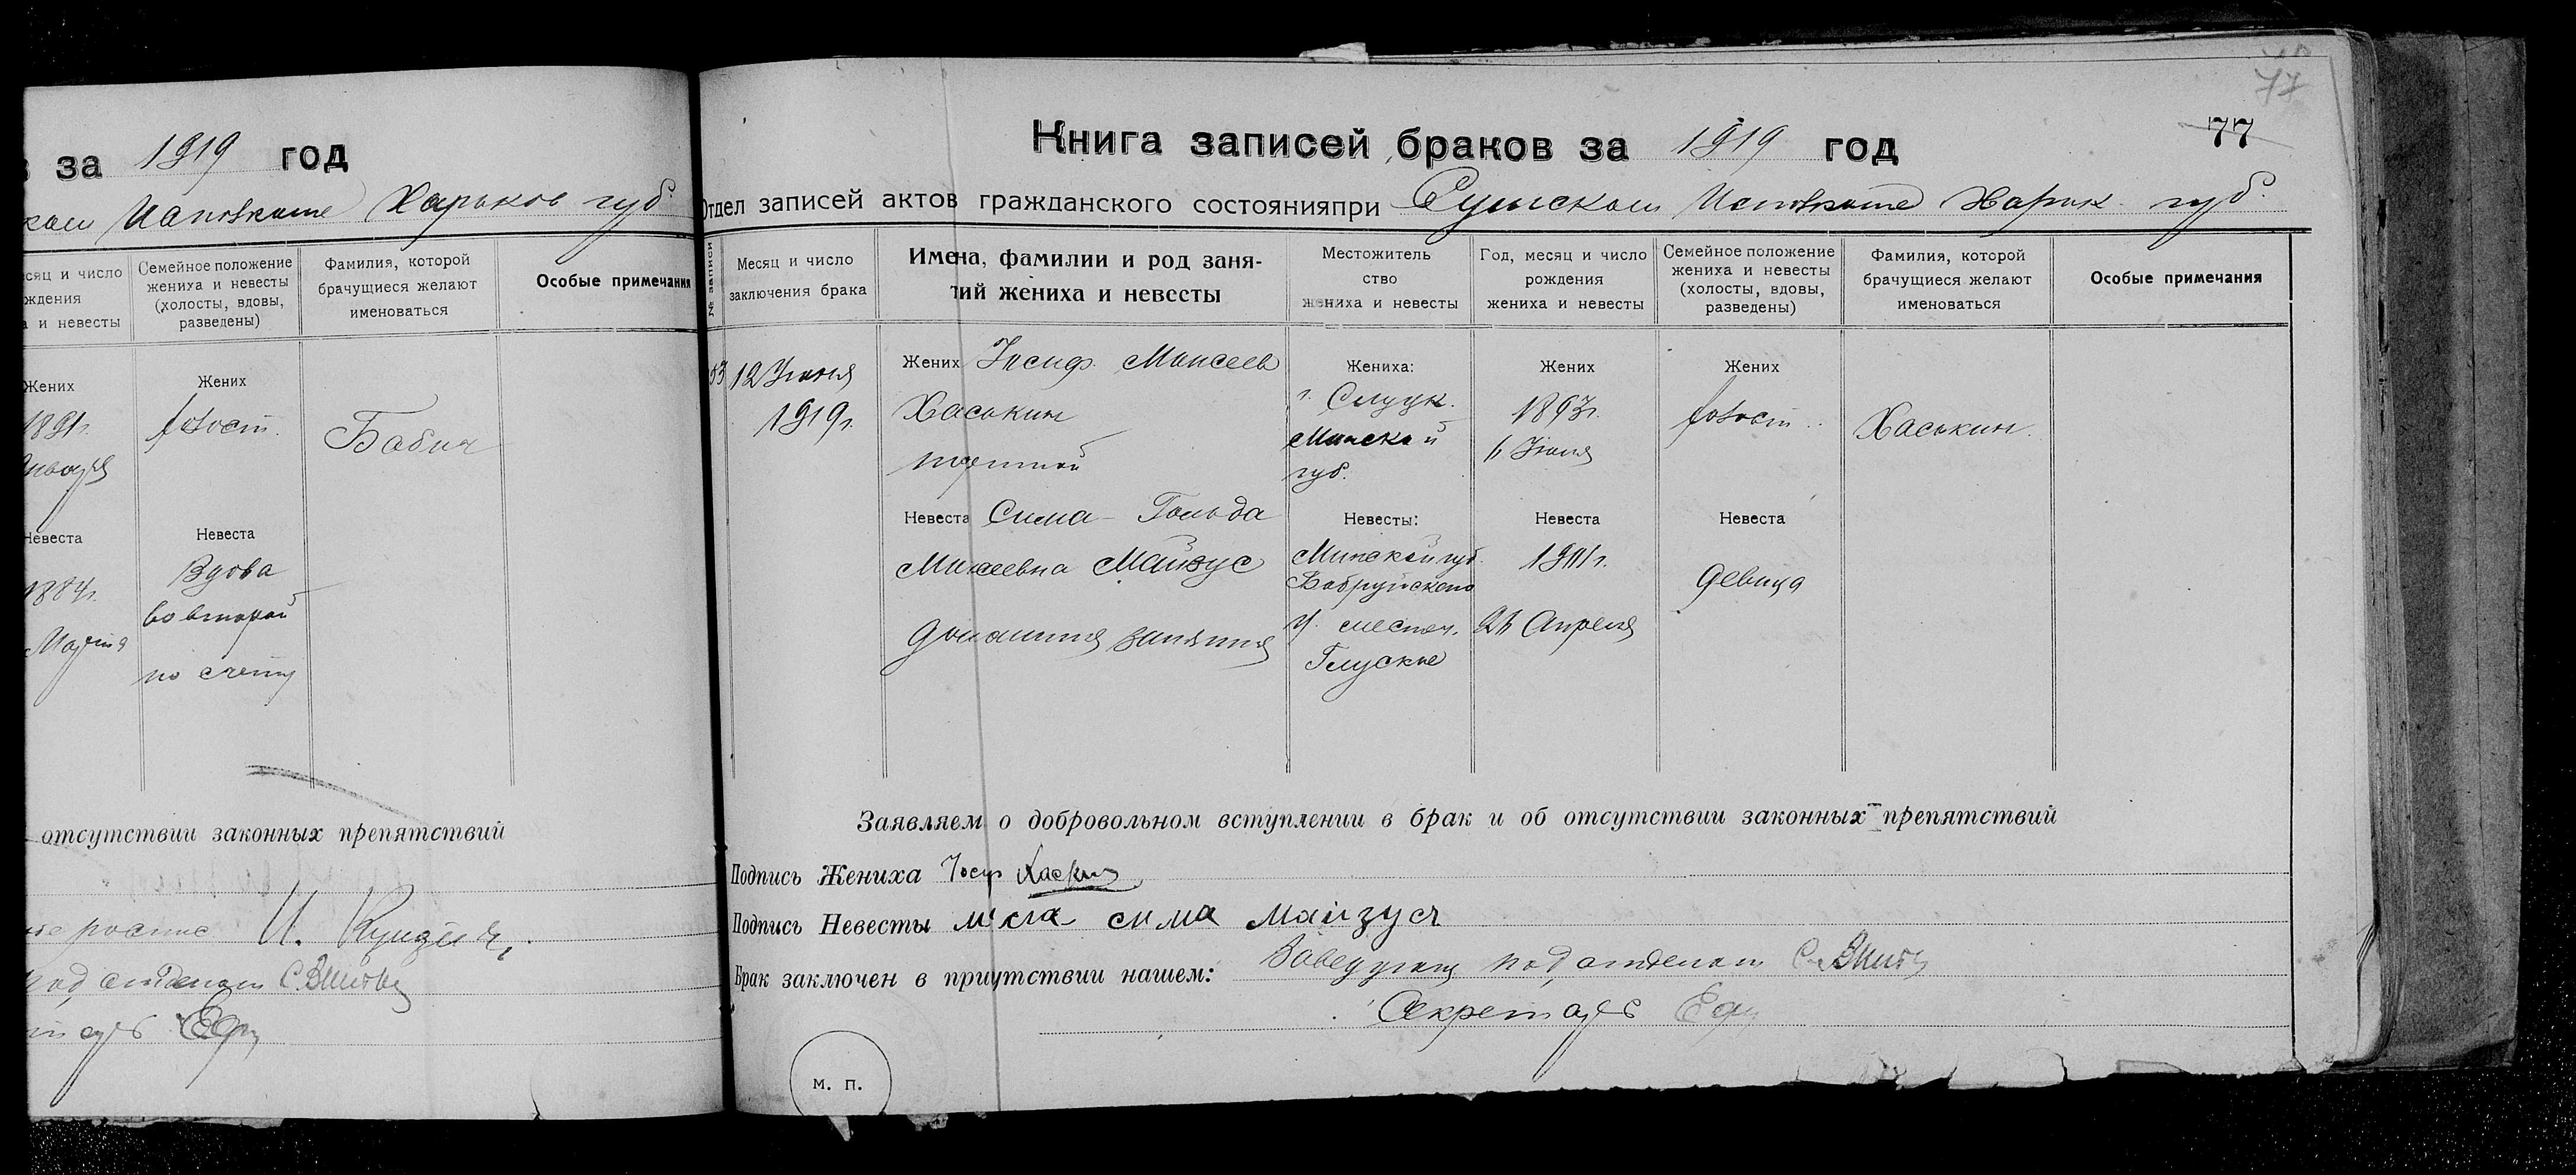 за 1919 год
ком Исповкоме Харьков губ.
сяц и число
ждения
и невесты
Семейное положение
жениха и невесты
(холосты, вдовы,
разведены)
Фамилия, которой
брачущиеся желают
именоваться
Особые примечания
Жених
1891 г.
Января
Жених
холост.
Бабич
Невеста
1884 г.
Марта
Невеста
Вдова
во второй
по счету
отсутствии законных препятствий
И.
под,отделом С.
77
Книга записей браков за 1919 год
77
Отдел записей актов гражданского состоянияпри Сумском Исповкоме Харьк. губ.
№ записи
Месяц и число
заключения брака
Имена, фамилии и род заня-
тий жениха и невесты
Местожитель
ство
жениха и невесты
Год, месяц и число
рождения
жениха и невесты
Семейное положение
жениха и невесты
(холосты, вдовы,
разведены)
Фамилия, которой
брачущиеся желают
именоваться
Особые примечания
53
12 Июня
1919 г.
Жених Иосиф Моисеев
Хаськин
портной
Жениха:
г. Слуцк.
Минской
губ.
Жених
1893 г.
Июня
Жених
холост.
Хаськин.
Невеста Сима - Гольда
Моисеевна Майзус
домашния занятия
Невесты:
Минской губ.
Бобруйского
у. местеч.
Глуске
Невеста
Апреля
Невеста
девица
Заявляем о добровольном вступлении в брак и об отсутствии законных препятствий
Подпись Жениха Иосиф Хаскин
Подпись Невесты сима майзус
Брак заключен в приутствии нашем: Заведующ под,отделом С.
Секретарь
м. п.